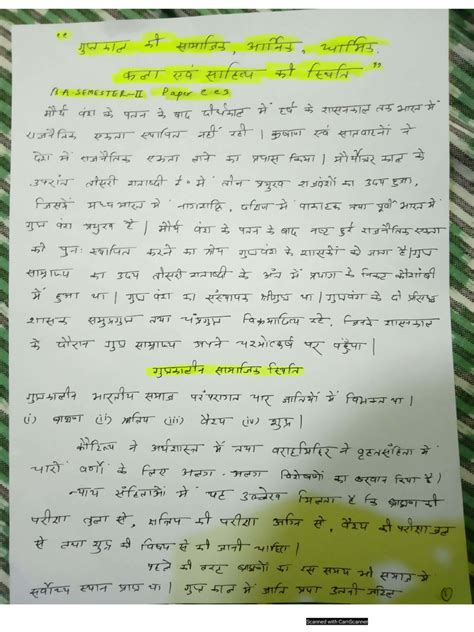 "गुप्तकाल की सामाजिक, आर्थिक, धार्मिक,
कला एवं साहित्य की स्थिति"
B.A-SEMESTER-II Paper C.C3
मौर्य वंश के पतन के बाद दीर्घकाल में हर्ष के शासनकाल तक भारत में
राजनैतिक एकता स्थापित नहीं रही। कुषाण एवं सातवाहनों ने
देश में राजनैतिक एकता लाने का प्रयास किया। मौर्योत्तर काल के
उपरांत तीसरी शताब्दी ई० में तीन प्रमुख राजवंशों का उदय हुआ,
जिसमें मध्य भारत में नागशक्ति, दक्षिण में वाकाटक तथा पूर्वी भारत में
गुप्त वंश प्रमुख है। मौर्य वंश के पतन के बाद नष्ट हुई राजनैतिक एकता
को पुनः स्थापित करने का श्रेय गुप्तवंश के शासकों को जाता है। गुप्त
साम्राज्य का उदय तीसरी शताब्दी के अंत में प्रयाग के निकट कौशांबी
में हुआ था। गुप्त वंश का संस्थापक श्रीगुप्त था। गुप्तवंश के दो प्रसिद्ध
शासक समुद्रगुप्त तथा चंद्रगुप्त विक्रमादित्य रहे, जिनके शासनकाल
के दौरान गुप्त साम्राज्य अपने चरमोत्कर्ष पर पहुँचा।
गुप्तकालीन सामाजिक स्थिति
गुप्तकालीन भारतीय समाज परंपरागत चार जातियों में विभक्त था।
(i) ब्राह्मण (ii) क्षत्रिय (iii) वैश्य (iv) शूद्र।
कौटिल्य ने अर्थशास्त्र में तथा वराहमिहिर ने वृहतसंहिता में
चारों वर्णों के लिए अलग-अलग विशेषणों का
न्याय संहिताओं में यह उल्लेख मिलता है कि ब्राह्मण की
परीक्षा तुला से, क्षत्रिय की परीक्षा अग्नि से, वैश्य की परीक्षा जल
से तथा शूद्र की विषय से की जानी चाहिए।
पहले की तरह ब्राह्मणों का इस समय भी समाज में
सर्वोच्च स्थान प्राप्त था। गुप्त काल में जाति प्रथा उतनी जटिल
Scanned with CamScanner